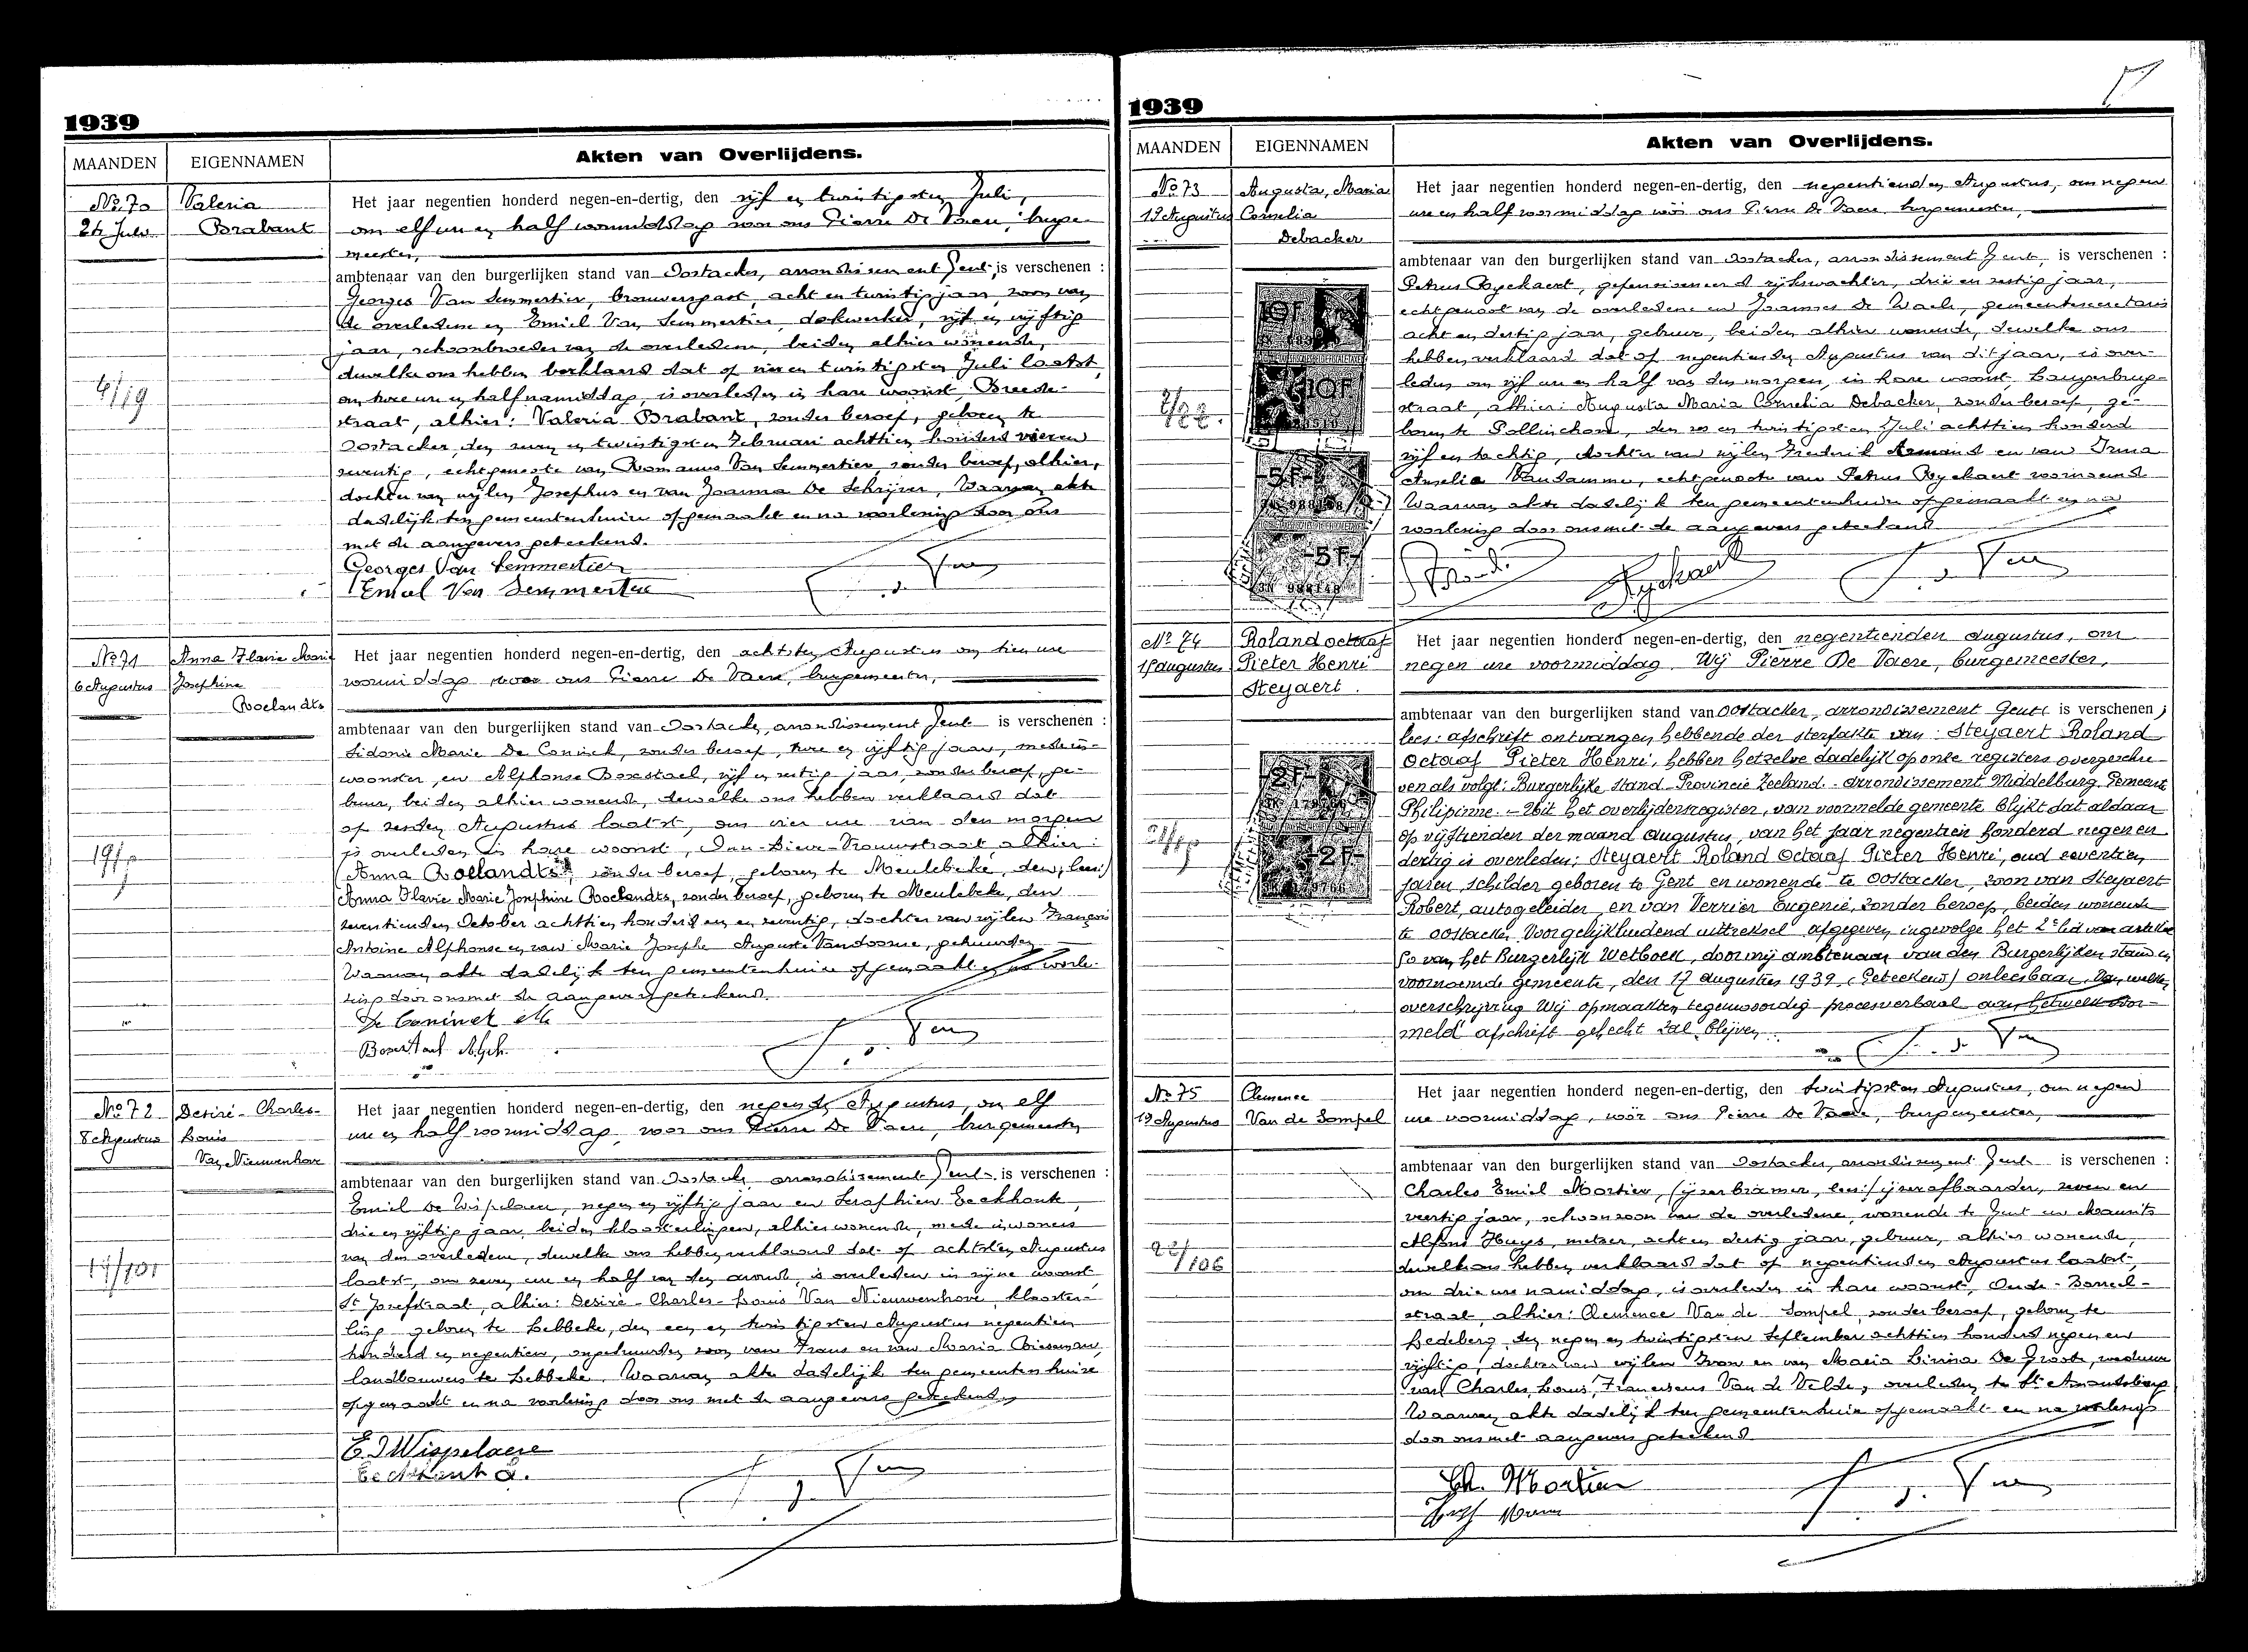 1939
MAANDEN EIGENNAMEN Akten van Overlijdens.
No 70
24 Juli
Valeria
Brabant
Het jaar negentien honderd negen-en-dertig, den vijf en twintigsten Juli,
om elf ure en half voormiddag voor ons Pierre De Vaere, burge-
meester,
ambtenaar van den burgerlijken stand van Oostacker, arrondissement Gent, is verschenen :
Georges Van Lemmertier, brouwersgast, acht en twintig jaar, zoon van
de overledene en Emiel Van Lemmertier, dokwerker, vijf en vijftig
jaar, schoonbroeder van de overledene, beiden alhier wonende,
dewelke ons hebben verklaard dat op vier en twintigsten Juli laatst,
om twee ure en half namiddag, is overleden in hare woonst, Breede-
straat, alhier: Valeria Brabant, zonder beroep, geboren te
Oostacker, den zeven en twintigsten Februari achttien honderd vier en
zeventig, echtgenoote van Romanus Van Lemmertier, zonder beroep, alhier,
dochter van wijlen Josephus en van Joanna De Schrijver, Waarvan akte
dadelijk ten gemeentenhuize opgemaakt en na voorlezing door ons
met de aangevers geteekend.
Georges Van Lemmertier
Emiel Van Lemmertier
No 71
6 Augustus
Anna Flavie Marie
Josephine
Roelandts
Het jaar negentien honderd negen-en-dertig, den achtsten Augustus om tien ure
voormiddag voor ons Pierre De Vaere, burgemeester,
ambtenaar van den burgerlijken stand van Oostacker, arrondissement Gent is verschenen :
Sidonie Marie De Coninck, zonder beroep, twee en vijftig jaar, medein-
woonster, en Alphonse Boxstael, vijf en zestig jaar, zonder beroep, ge-
buur, beiden alhier wonende, dewelke ons hebben verklaard dat
op zesden Augustus laatst, om vier ure van den morgen
is overleden in hare woonst, Onze-Lieve-Vrouwstraat, alhier:
(Anna Roelandts, zonder beroep, geboren te Meulebeke, den, lees:)
Anna Flavie Marie Josephine Roelandts, zonder beroep, geboren te Meulebeke, den
zeventienden October achttien honderd een en zeventig, dochter van wijlen François
Antoine Alphonse en van Marie Josephe Auguste Vandoorne, gehuwden
Waarvan akte dadelijk ten gemeentenhuize opgemaakt en na voorle-
zing door ons met de aangevers geteekend.
De Coninck M
Boxstael Alph.
No 72
8 Augustus
Desiré-Charles-
Louis
Van Nieuwenhove
Het jaar negentien honderd negen-en-dertig, den negenden Augustus, om elf
ure en half voormiddag, voor ons Pierre De Vaere, burgemeester
ambtenaar van den burgerlijken stand van Oostacker, arrondissement Gent is verschenen :
Emiel De Wispelaere, negen en vijftig jaar en Serafhien Eeckhout,
drie en vijftig jaar, beiden kloosterlingen, alhier wonende, mede inwoners
van den overledene, dewelke ons hebben verklaard dat op achtsten Augustus
laatst, om zeven ure en half van den avond, is overleden in zijne woonst,
St Jozefstraat, alhier: Desiré-Charles-Louis Van Nieuwenhove, klooster-
ling, geboren te Lebbeke, den een en twintigsten Augustus negentien
honderd en negentien, ongehuwden zoon van Frans en van Maria
landbouwers te Lebbeke. Waarvan akte dadelijk ten gemeentenhuize
opgemaakt en na voorlezing door ons met de aangevers geteekend,
E. D Wispelaere
Eeckhout S.
1939
MAANDEN EIGENNAMEN Akten van Overlijdens.
No 73
19 Augustus
Augusta, Maria
Cornelia
Debacker
Het jaar negentien honderd negen-en-dertig, den negentienden Augustus, om negen
ure en half voormiddag vóór ons Pierre De Vaere, burgemeester,
ambtenaar van den burgerlijken stand van Oostacker, arrondissement Gent, is verschenen :
Petrus Ryckaert, gepensioneerd rijkswachter, drie en zestig jaar,
echtgenoot van de overledene en Joannes De Waele, gemeentesecretaris
acht en dertig jaar, gebuur, beiden alhier wonende, dewelke ons
hebben verklaard dat op negentienden Augustus van dit jaar, is over-
leden om vijf ure en half van den morgen, in hare woonst Langerbrug-
straat, alhier: Augusta Maria Cornelia Debacker, zonder beroep, ge-
boren te Pollinchove, den zes en twintigsten Juli achttien honderd
vijf en tachtig, dochter van wijlen Frederik Armand en van Irma
Amelia Vandamme, echtgenoote van Petrus Ryckaert voornoemd
Waarvan akte dadelijk ten gemeentenhuize opgemaakt en na
voorlezing door ons met de aangevers geteekend
Ryckaert
No 74
15 augustus
Roland octaaf
Pieter Henri
Steyaert.
Het jaar negentien honderd negen-en-dertig, den negentienden augustus, om
negen ure voormiddag. Wij Pierre De Vaere, burgemeester,
ambtenaar van den burgerlijken stand van Oostacker, arrondissement Gent is verschenen ;
lees: afschrift ontvangen hebbende der sterfakte van: Steyaert Roland
Octaaf Pieter Henri, hebben hetzelve dadelijk op onze registers overgeschre-
ven als volgt: Burgerlijke stand - Provincie Zeeland - arrondissement Middelburg. Gemeente
Philippine. - Uit het overlijdensregister, van voormelde gemeente blijkt dat aldaar
op vijftienden der maand augustus van het jaar negentien honderd negen en
dertig is overleden: Steyaert Roland Octaaf Pieter Henri, oud zeventien
jaren, schilder geboren te Gent en wonende te Oostacker, zoon van Steyaert
Robert, autogeleider en van Verrier Eugenie, zonder beroep, beiden wonende
te Oostacker. Voorgelijkluidend uittreksel afgegeven ingevolge het 2e lid van artikel
50 van het Burgerlijk Wetboek, door mij ambtenaar van den Burgerlijken stand in
voornoemde gemeente, den 17 augustus 1939. (Geteekend) onleesbaar. Van welke
overschrijving Wij opmaakten tegenwoordig procesverbaal aan hetwelk voor-
meld afschrift gehecht zal blijven.
No 75
19 Augustus
Clemence
Van de Sompel
Het jaar negentien honderd negen-en-dertig, den twintigsten Augustus, om negen
ure voormiddag, vóór ons Pierre De Vaere, burgemeester,
ambtenaar van den burgerlijken stand van Oostacker, arrondissement Gent is verschenen :
Charles Emiel Mortier, (ijzerbramer, lees:) ijzerafbaarder, zeven en
veertig jaar, schoonzoon van de overledene, wonende te Gent en Maurits
Alfons Huys, metser, acht en dertig jaar, gebuur, alhier wonende,
dewelke ons hebben verklaard dat op negentienden Augustus laatst,
om drie ure namiddag, is overleden in hare woonst, Oude-Bareel-
straat, alhier: Clemence Van de Sompel, zonder beroep, geboren te
Ledeberg den negen en twintigsten September achttien honderd negen en
vijftig, dochter van wijlen Ivon en van Maria Livina De Groote, weduwe
van Charles Louis Franciscus Van de Velde, overleden te St Amandsberg
Waarvan akte dadelijk ten gemeentenhuize opgemaakt en na voorlezing
door ons met aangevers geteekend
Ch. Mortier